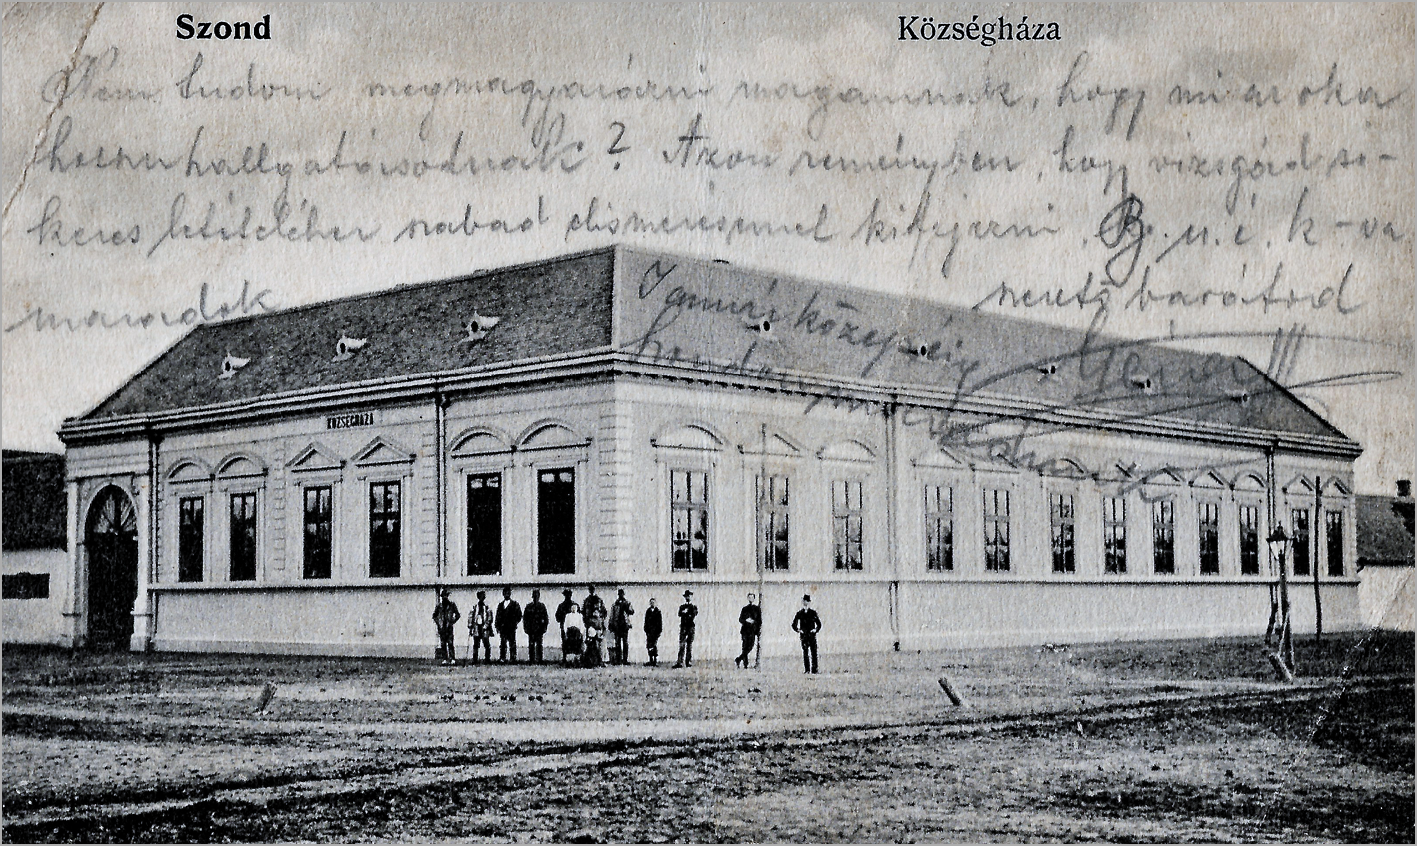 Szond
Községháza
Nem tudom megmagyarázni magamnak, hogy mi az oka
hosszu hallgatásodnak? Azon reményben, hogy vizsgád si-
keres letételéhez szabad elismerésemet kifejezni, B. u. é. k - va
maradok szerető barátod
Januári közepéig
KÖZSÉGHÁZA